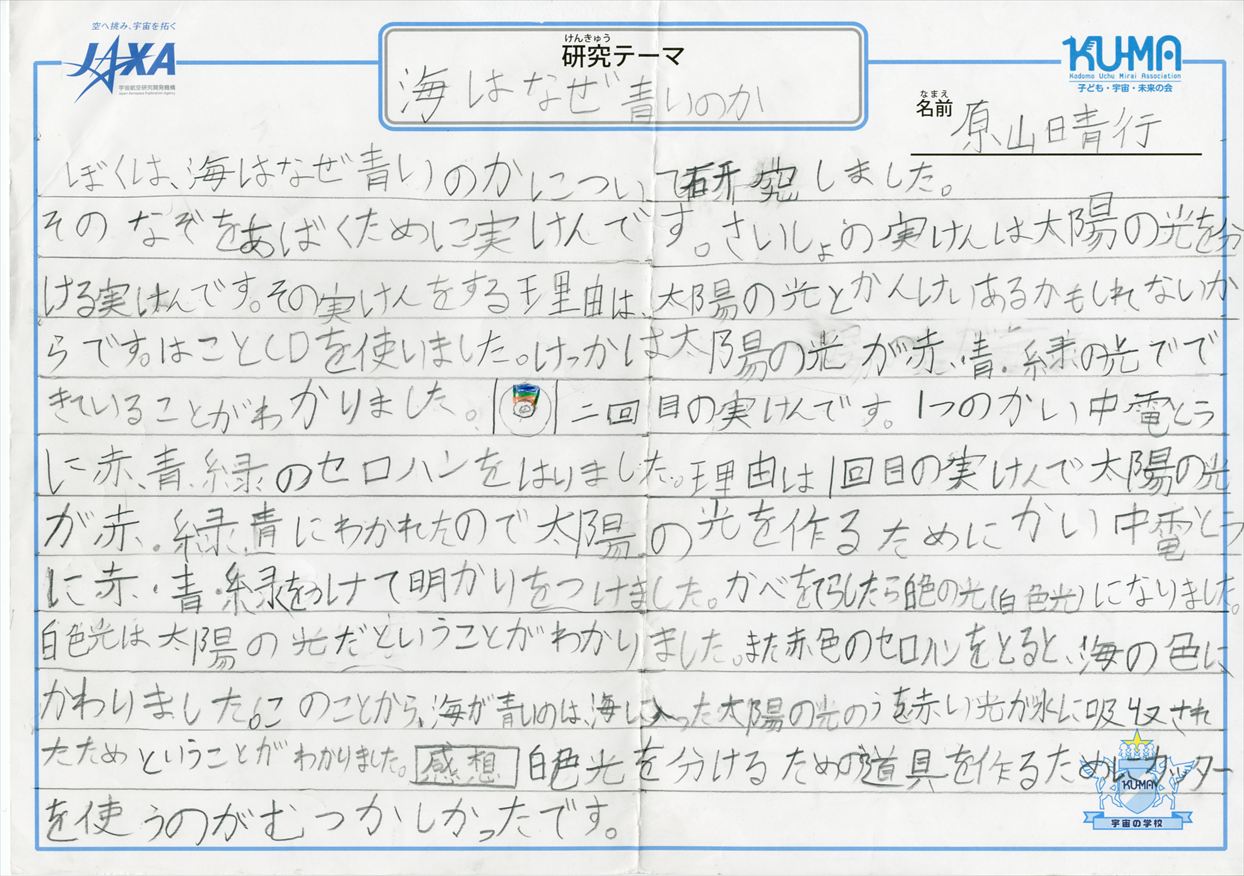 空へ挑み、宇宙を拓く
JAXA
宇宙航空研究開発機構
Japan Aerospace Exploration Agency
けんきゅう
研究テーマ
海はなぜ青いのか
KU-MA
Kodomo Uchu Mirai Association
子ども・宇宙・未来の会
なまえ
名前
原山晴行
ぼくは、海はなぜ青いのかについて研究しました。
そのなぞをあばくために実けんです。さいしょの実けんは太陽の光を分
ける実けんです。その実けんをする理由は、太陽の光とかんけいあるかもしれないか
らです。はことCDを使いました。けっかは太陽の光が赤、青、緑の光でで
きていることがわかりました。二回目の実けんです。1つのかい中電とう
に赤、青、緑のセロハンをはりました。理由は1回目の実けんで太陽の光
が赤、緑、青にわかれたので太陽の光を作るためにかい中電とう
に赤・青・緑をつけて明かりをつけました。かべをてらしたら白色の光(白色光)になりました。
白色光は太陽の光だということがわかりました。また赤色のセロハンをとると、海の色に
かわりました。このことから、海が青いのは、海に入った太陽の光のうを赤い光が水に吸収され
たためということがわかりました。感想 白色光を分けるための道具を作るためにカッター
を使うのがむつかしかったです。
KU-MA
宇宙の学校